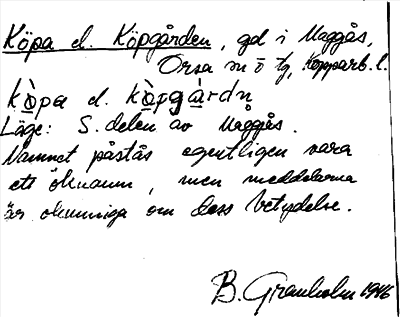 Köpa el. Köpgården, gd i Maggås,
Orsa sn ö tg, Kopparb. l.
kò̲pa el. kò̲pgà̲rdn̥
Läge: S. delen av Maggås.
Namnet påstås egentligen vara
ett öknamn, men meddelarna
är okunniga om dess betydelse.
B. Granholm 1946